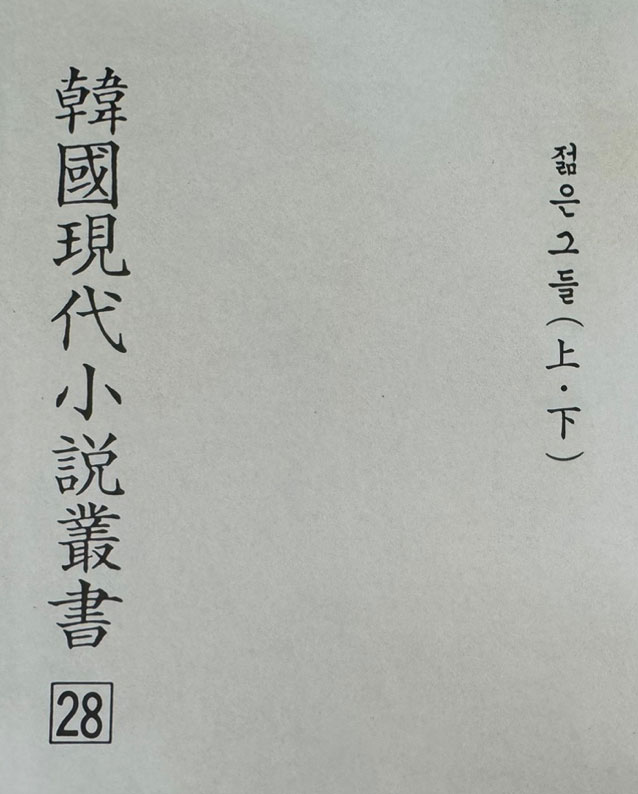 젊은그들(上·下)
韓國現代小說叢書
28